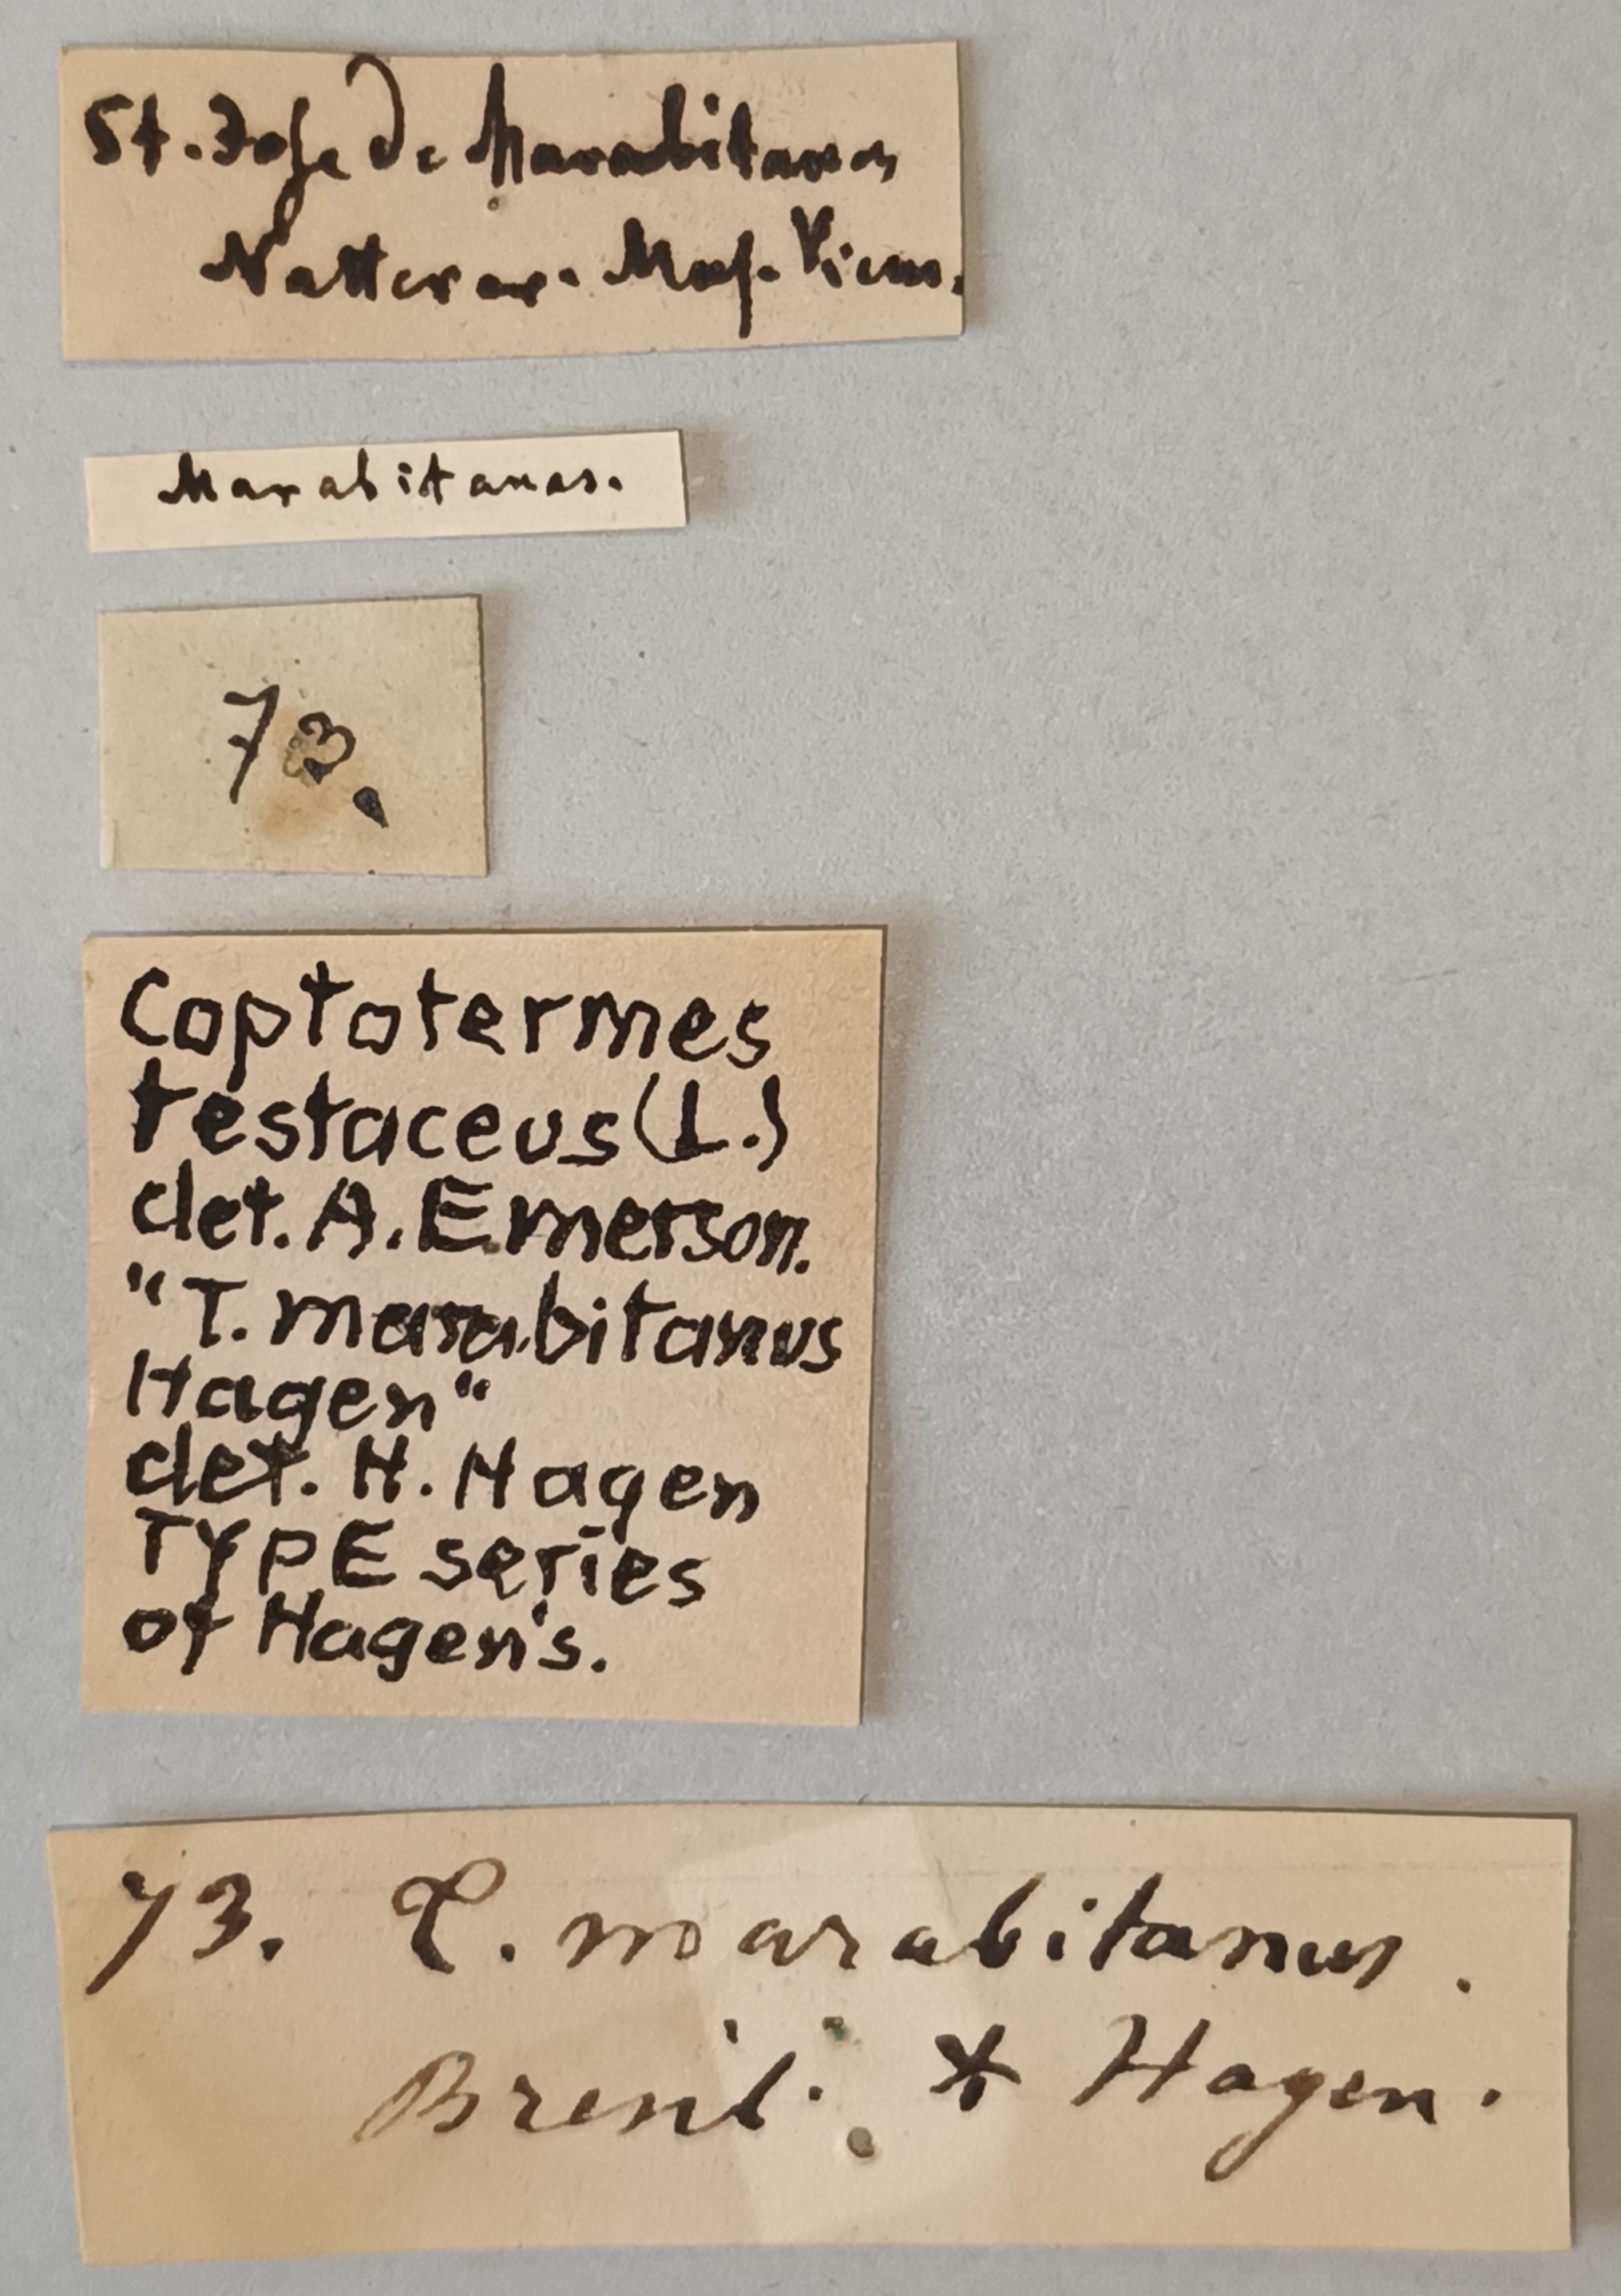 St. Jose de Marabitanos
Natterer. Mus. Vienn.
Marabitanas.
73.
Coptotermes
testaceus (L.)
det. A. Emerson.
"T. marabitanus
Hagen"
det. H. Hagen
TYPE series
of Hagen's.
73. T. marabitanus.
Bresil. * Hagen.